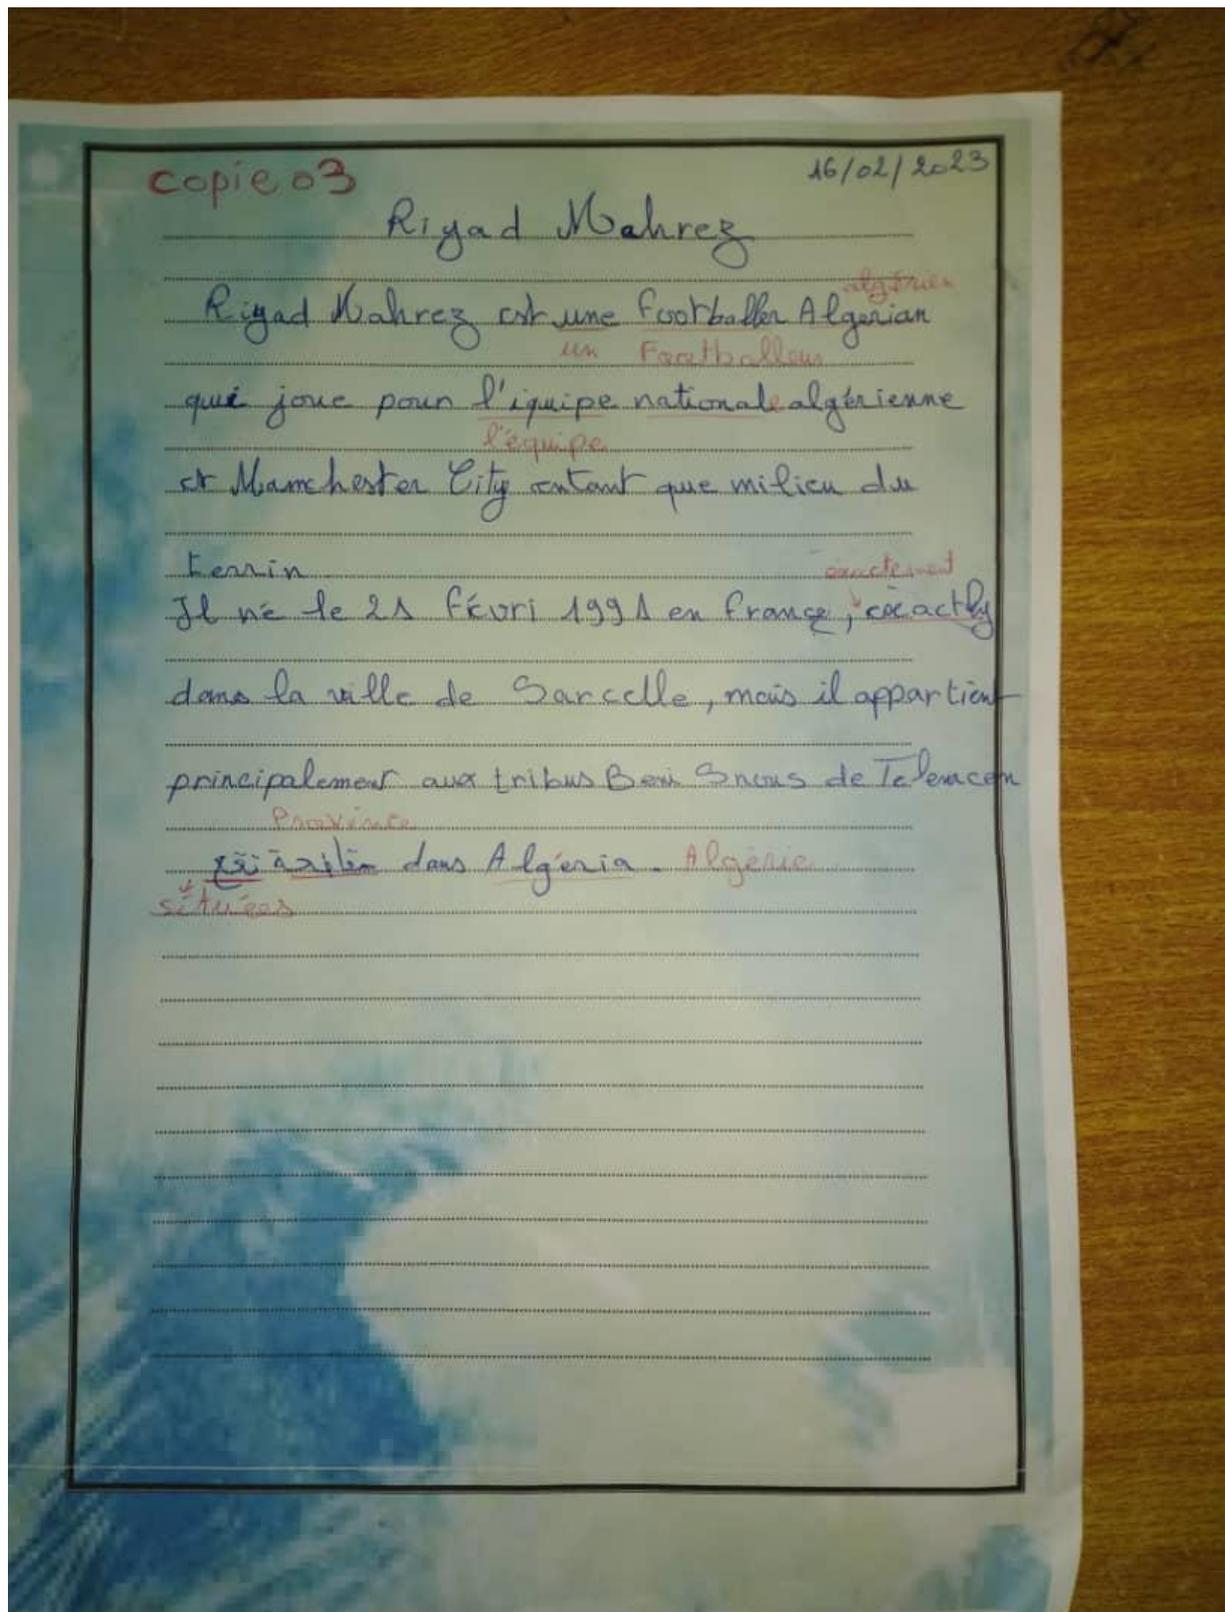 copie 03
16/02/2023
Riyad Mahrez
algérien
Riyad Mahrez est une footballer Algerian
un Footballeur
qui joue pour l'iquipe nationale algérienne
l'équipe
et Manchester City entant que milieu du
terrin
exactement
Il né le 21 févri 1991 en france, exactly
dans la ville de Sarcelle, mais il appartient
principalement aux tribus Beni Snous de Telemcen
Province
تقع مقاطعة dans Algéria. Algérie
situées